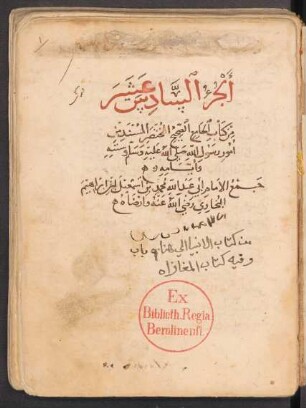 الجزء السادس عشر
من كتاب الجامع الصحيح المختصر المسند من
امور رسول الله صلى الله عليه وسلم وسننه
وايامه
جمع الامام ابي عبد الله محمد بن اسمعيل بن ابراهيم
البخاري رضي الله عنه وارضاه
من كتاب الانبيا الى باب
وفيه كتاب المغازاه
Ex
Biblioth. Regia
Berolinensi